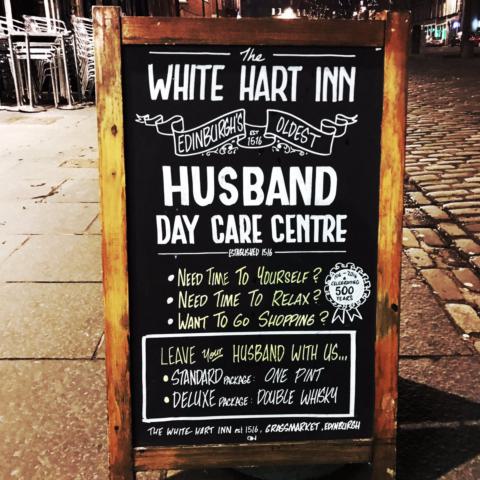 The
WHITE HART INN
EDINBURGH'S EST 1516 OLDEST
HUSBAND
DAY CARE CENTRE
ESTABLISHED 1516
• NEED TIME TO YOURSELF?
• NEED TIME TO RELAX?
• WANT TO GO SHOPPING?
1516 - 2016
CELEBRATING
500
YEARS
LEAVE your HUSBAND WITH US...
• STANDARD PACKAGE: ONE PINT
• DELUXE PACKAGE: DOUBLE WHISKY
THE WHITE HART INN est 1516, GRASSMARKET, EDINBURGH